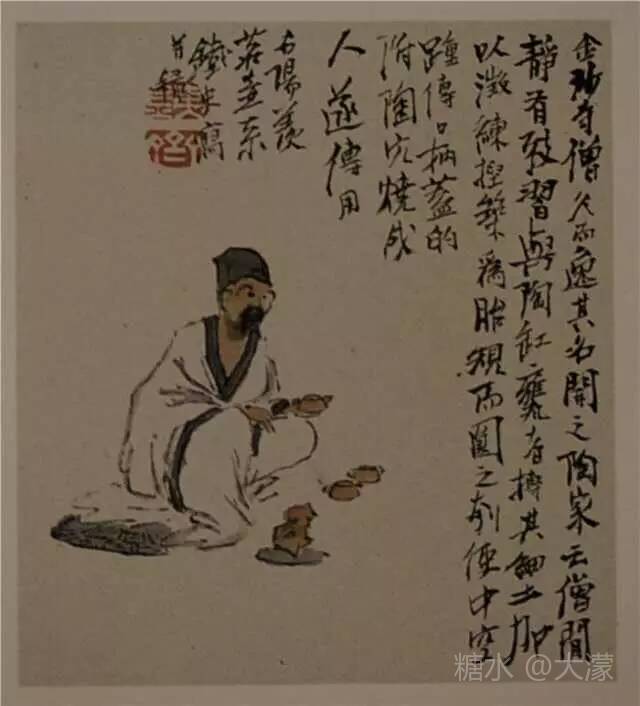 金沙寺僧久而逸其名聞之陶家云僧閒
靜有致習與陶缸甕者摶其細土加
以澂練揑築為胎規而圓之刳使中空
踵傅口柄蓋的
附陶穴燒成
人遂傳用
右陽羨
茗壺系
鐵生寫
糖水 @大濛